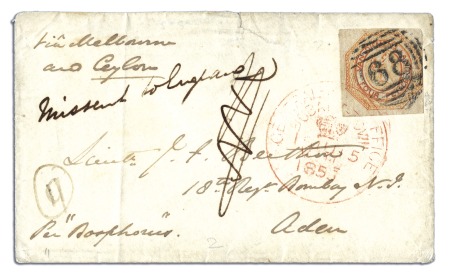 via Melbourne
and Ceylon
Missent to England
88
Lieut J. F.
18th Regt Bombay N. I.
Aden
Per "Bosphorus"